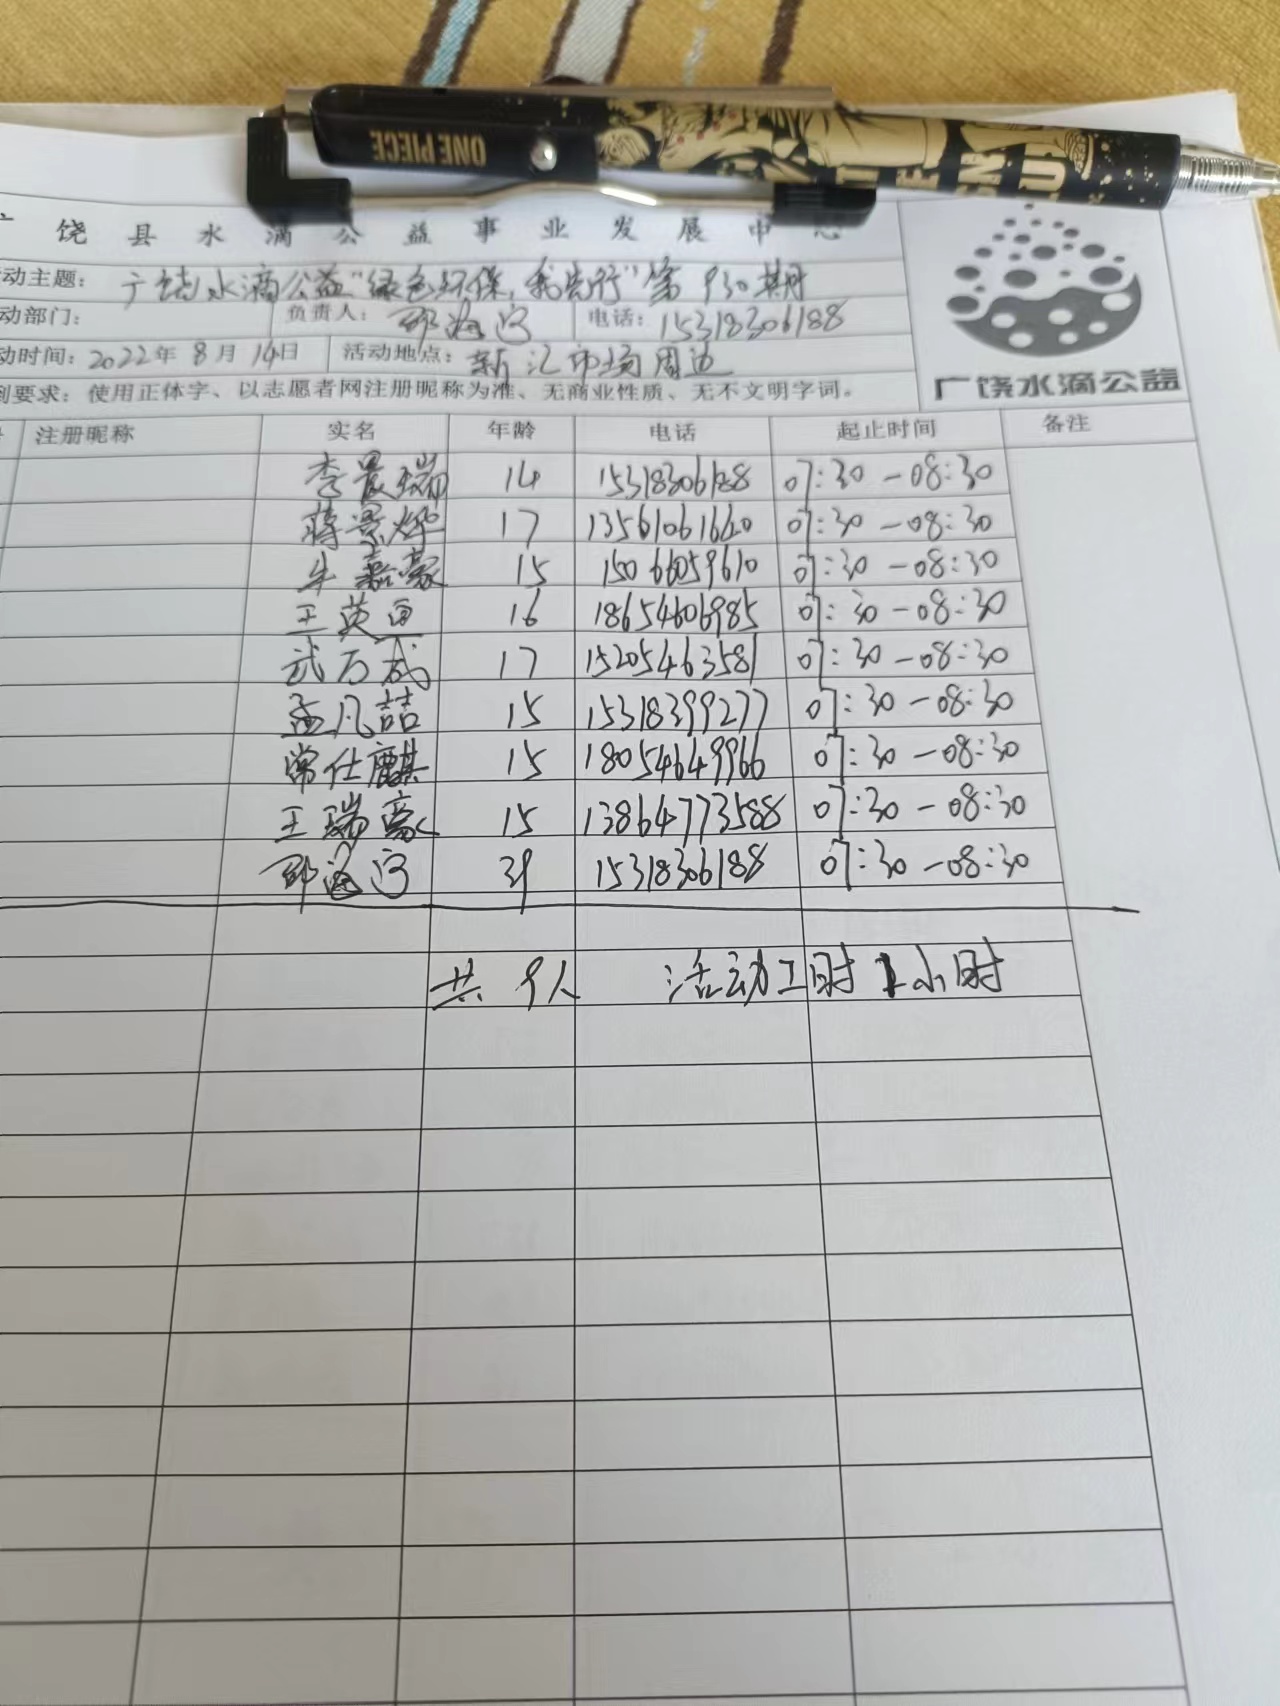 ONE PIECE
广饶县水滴公益事业发展中心
动主题：广饶水滴公益“绿色环保，我先行”第930期
动部门： 负责人：邵海滨 电话：15318306188
动时间：2022年8月14日 活动地点：新汇市场周边
到要求：使用正体字、以志愿者网注册昵称为准、无商业性质、无不文明字词。
广饶水滴公益
注册昵称 实名 年龄 电话 起止时间 备注
李晨瑞 14 15318306188 07:30-08:30
蒋景烨 17 13561061660 07:30-08:30
牛嘉豪 15 15066059610 07:30-08:30
王英 16 18654606985 07:30-08:30
武万成 17 15205463581 07:30-08:30
孟凡喆 15 15318399277 07:30-08:30
常仕麒 15 18054649966 07:30-08:30
王瑞豪 15 13864773588 07:30-08:30
邵海滨 39 15318306188 07:30-08:30
共 9人 活动工时1小时